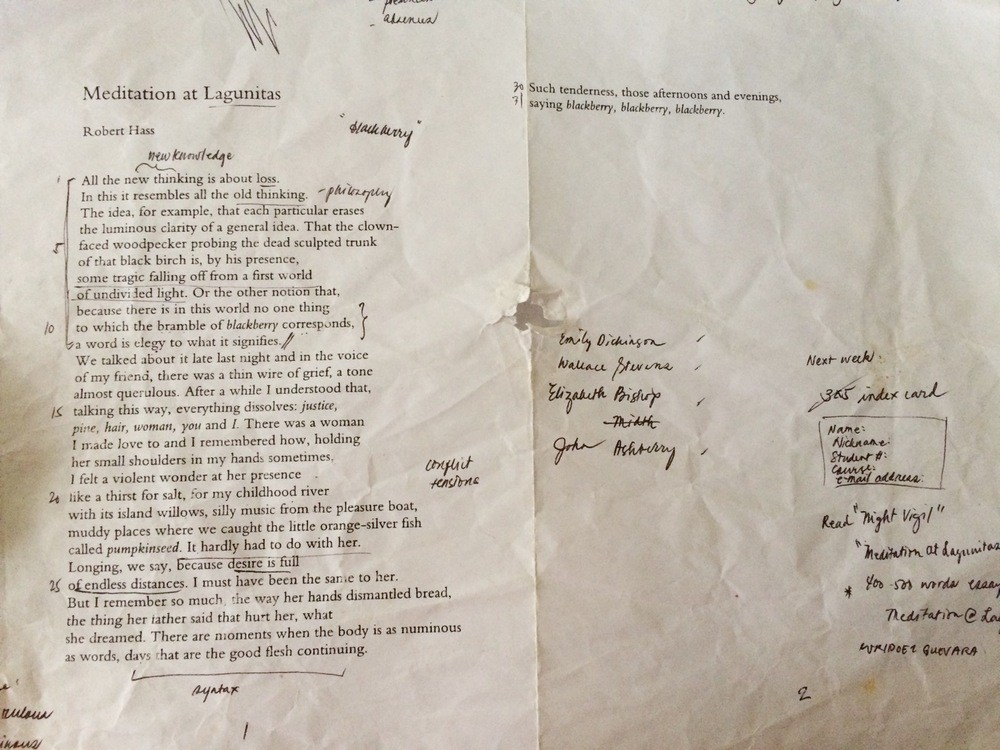 absentia
Meditation at Lagunitas
Robert Hass
"blackberry"
new knowledge
1 All the new thinking is about loss.
In this it resembles all the old thinking. - philosophy
The idea, for example, that each particular erases
the luminous clarity of a general idea. That the clown-
5 faced woodpecker probing the dead sculpted trunk
of that black birch is, by his presence,
some tragic falling off from a first world
of undivided light. Or the other notion that,
because there is in this world no one thing
10 to which the bramble of blackberry corresponds,
a word is elegy to what it signifies. //
We talked about it late last night and in the voice
of my friend, there was a thin wire of grief, a tone
almost querulous. After a while I understood that,
15 talking this way, everything dissolves: justice,
pine, hair, woman, you and I. There was a woman
I made love to and I remembered how, holding
her small shoulders in my hands sometimes,
I felt a violent wonder at her presence
20 like a thirst for salt, for my childhood river
with its island willows, silly music from the pleasure boat,
muddy places where we caught the little orange-silver fish
called pumpkinseed. It hardly had to do with her.
Longing, we say, because desire is full
25 of endless distances. I must have been the same to her.
But I remember so much, the way her hands dismantled bread,
the thing her father said that hurt her, what
she dreamed. There are moments when the body is as numinous
as words, days that are the good flesh continuing.
conflict
tensions
syntax
1
30 Such tenderness, those afternoons and evenings,
31 saying blackberry, blackberry, blackberry.
Emily Dickinson
Wallace Stevens
Elizabeth Bishop
John Ashberry
Next week:
3x5 index card
Name:
Nickname:
Student #:
Course:
e-mail address:
Read "Night Vigil"
"Meditation at Lagunitas
* 400-500 words essay
Meditation @ La
GUEVARA
2